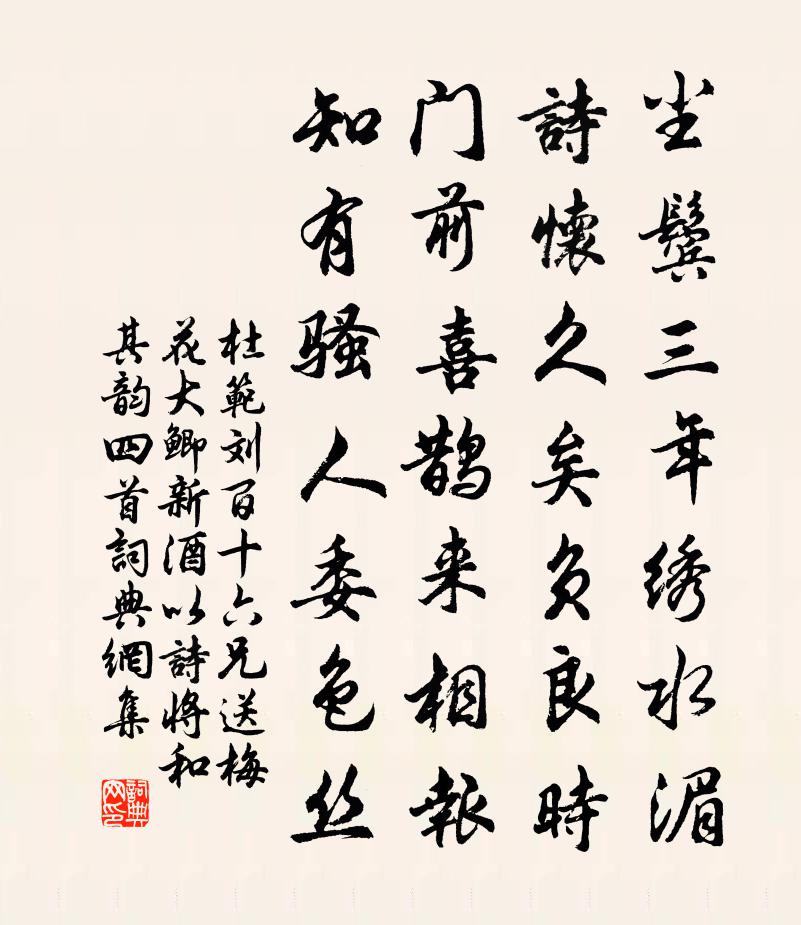 尘鬓三年绣水湄
詩懷久矣负良時
门前喜鵲来相報
知有骚人委色丝
杜範刘百十六兄送梅
花大鲫新酒以詩将和
其韵四首詞典網集
詞典网印